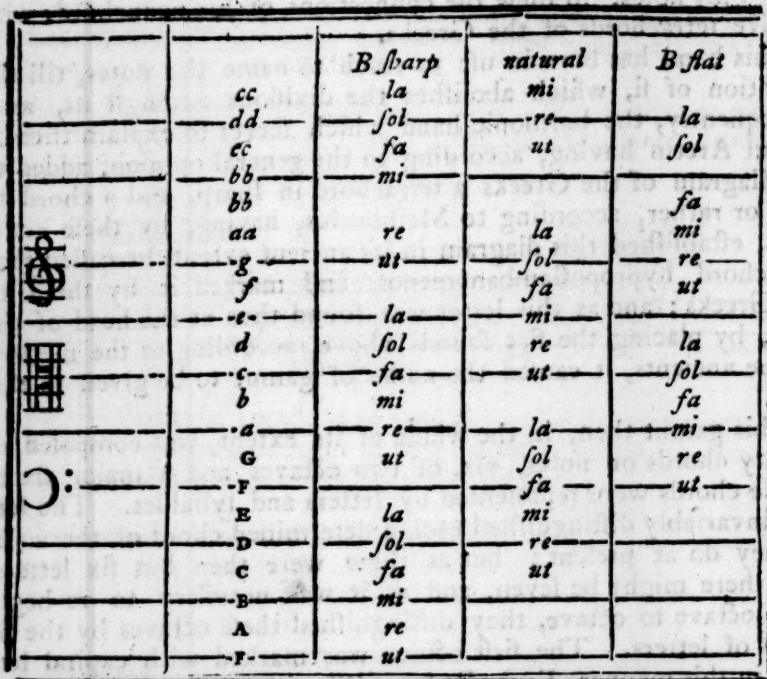 B ſharp natural B flat
cc la mi
dd ſol re la
ec fa ut ſol
bb mi
bb fa
aa re la mi
g ut ſol re
f fa ut
e la mi
d ſol re la
c fa ut ſol
b mi fa
a re la mi
G ut ſol re
F fa ut
E la mi
D ſol re
C fa ut
B mi
A re
F ut